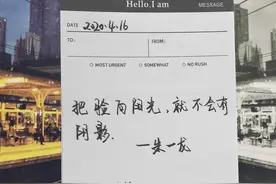 Hello, I am
MESSAGE
DATE 2020.4.16
TO: FROM:
MOST URGENT SOMEWHAT NO RUSH
把脸向阳光,就不会有
阴影.
一朱一龙